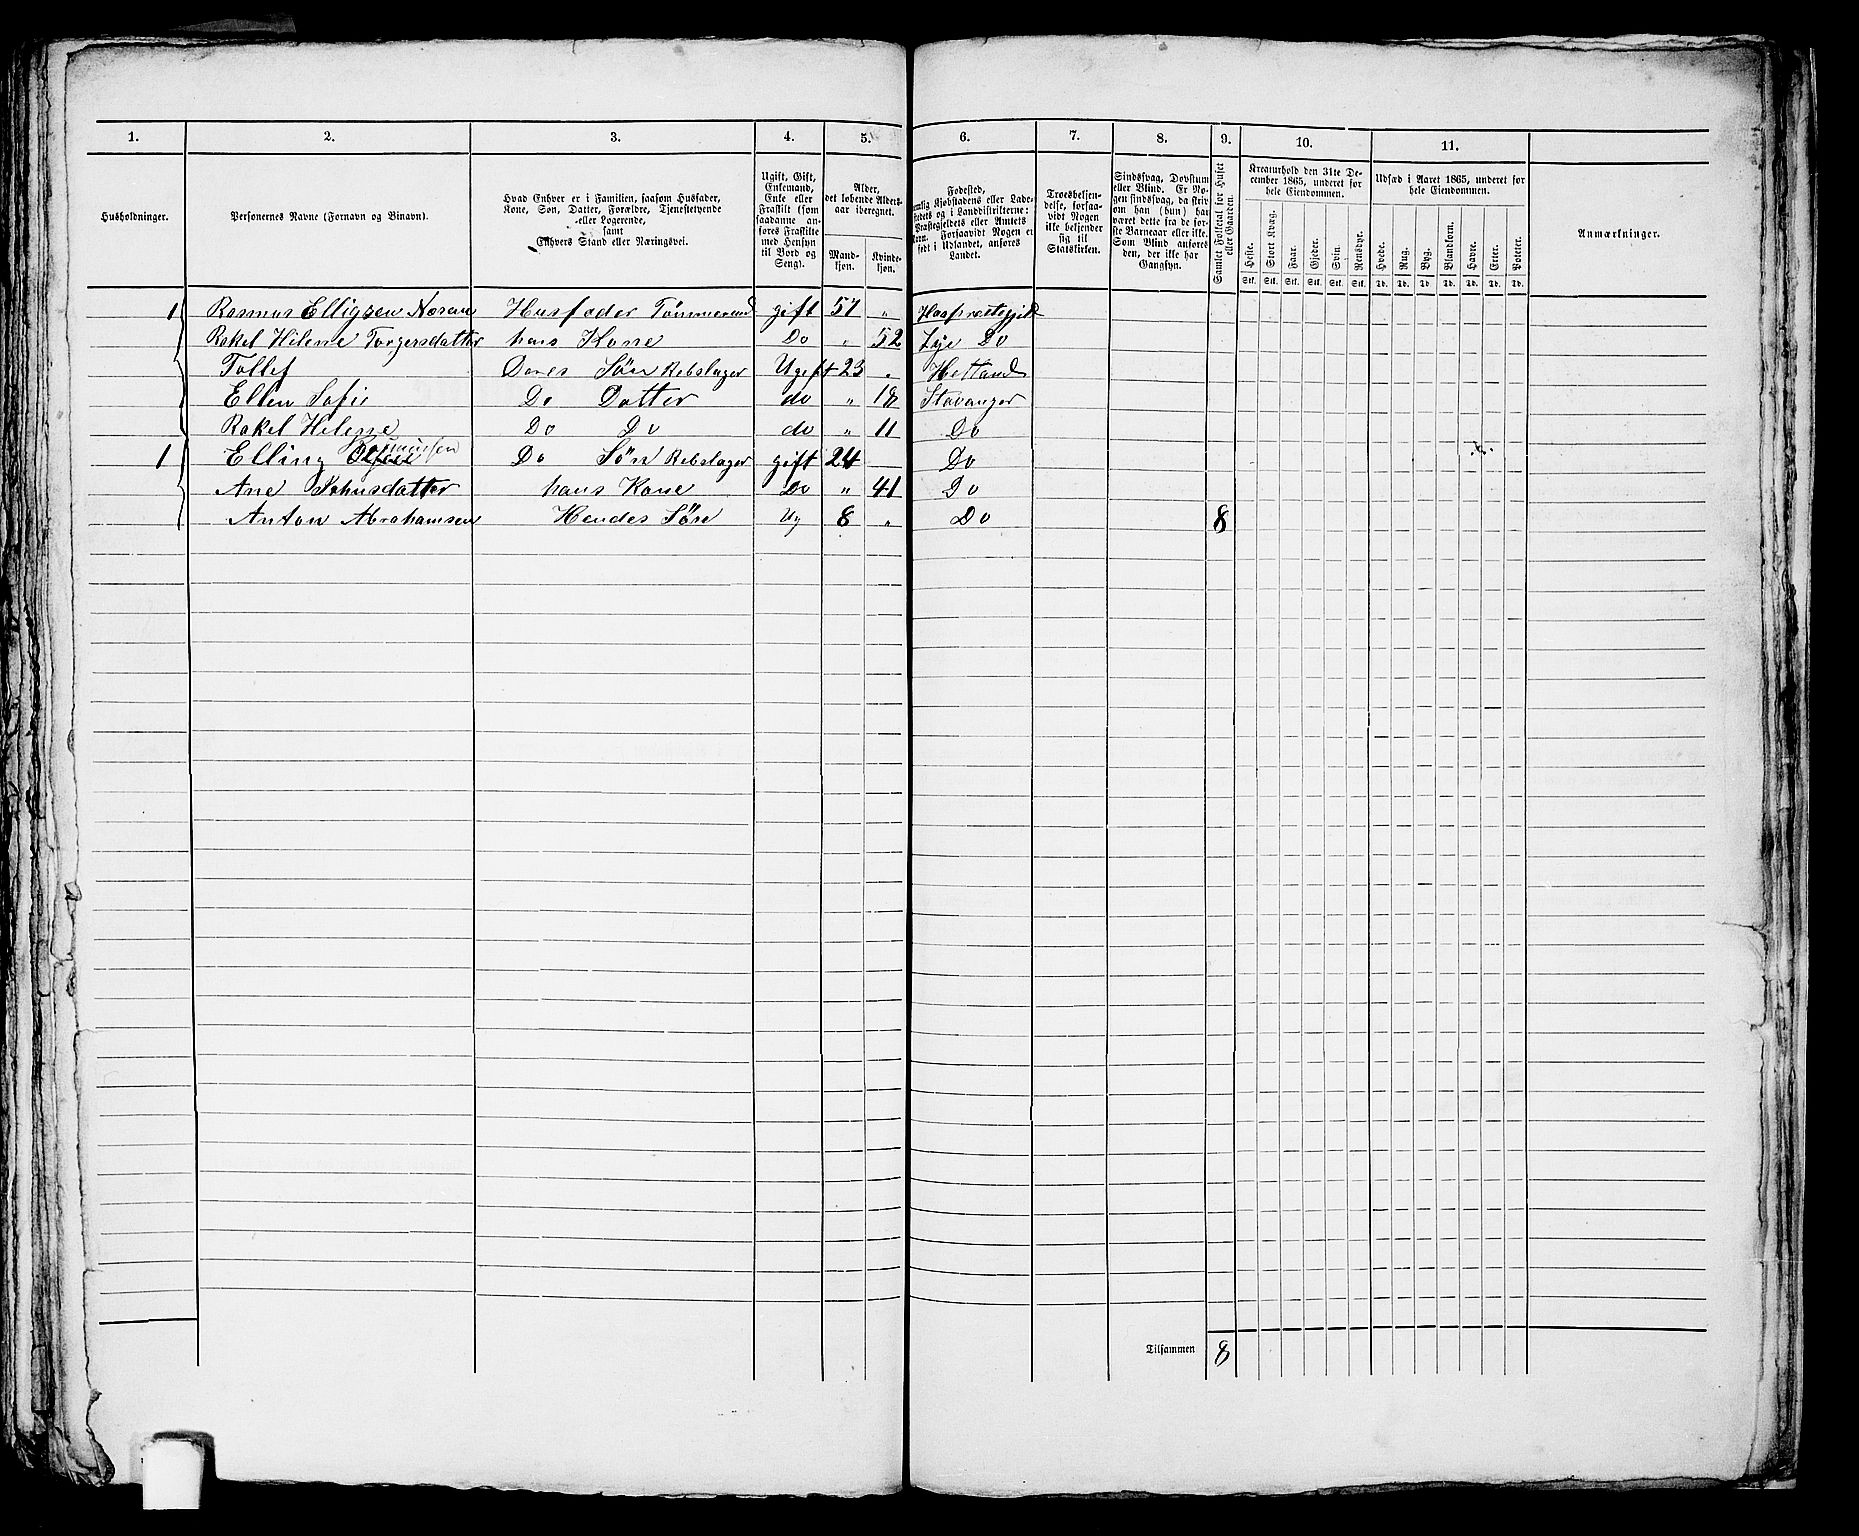 1. 2. 3. 4. 5. 6. 7. 8. 9. 10. 11.
Husholdninger.
Personernes Navne (Fornavn og Binavn).
Hvad Enhver er i Familien, saasom Husfader,
Kone, Søn, Datter, Forældre, Tjenestetyende
eller Logerende,
samt
Enhvers Stand eller Næringsvei.
Ugift, Gift,
Enkemand,
Enke eller
Fraskilt (som
saadanne an-
føres Fraskilte
med Hensyn
til Bord og
Seng).
Alder,
det løbende Alders-
aar iberegnet.
Mand-
kjøn.
Kvinde-
kjøn.
Fødested,
nemlig Kjøbstadens eller Lade-
stedets og i Landdistrikterne:
Præstegjeldets eller Amtets
Navn. Forsaavidt Nogen er
født i Udlandet, anføres
Landet.
Troesbekjen-
delse, forsaa-
vidt Nogen
ikke bekjender
sig til
Statskirken.
Sindssvag, Døvstum
eller Blind. Er No-
gen sindssvag, da skriv
om han (hun) har
været dette fra de før-
ste Barneaar eller ikke.
Som Blind anføres
den, der ikke har
Gangsyn.
Samlet Folketal for Huset
eller Gaarden.
Kreaturhold den 31te De-
cember 1865, underet for
hele Eiendommen.
Heste. Stort Kvæg. Faar. Gjeder. Svin. Rensdyr.
Stk. Stk. Stk. Stk. Stk. Stk.
Udsæd i Aaret 1865, underet for
hele Eiendommen.
Hvede. Rug. Byg. Blandkorn. Havre. Erter. Poteter.
Td. Td. Td. Td. Td. Td. Td.
Anmærkninger.
1 Rasmus Elligsen Husfader Tømmermd gift 57 "
Rakel Hilene Torgersdatter hans Kone Do " 52 Lye Do
Tollef Deres Søn Rebslager Ugift 23 " Hetland
Ellen Sofie Do Datter do " 18 Stavanger
Rakel Helene Do Do do " 11 Do
1 Elling Rasmussen Do Søn Rebslager gift 24 Do
Ane Johnsdatter hans Kone Do " 41 Do
Anton Abrahamsen Hendes Søn Ug 8 " Do 8
Tilsammen 8